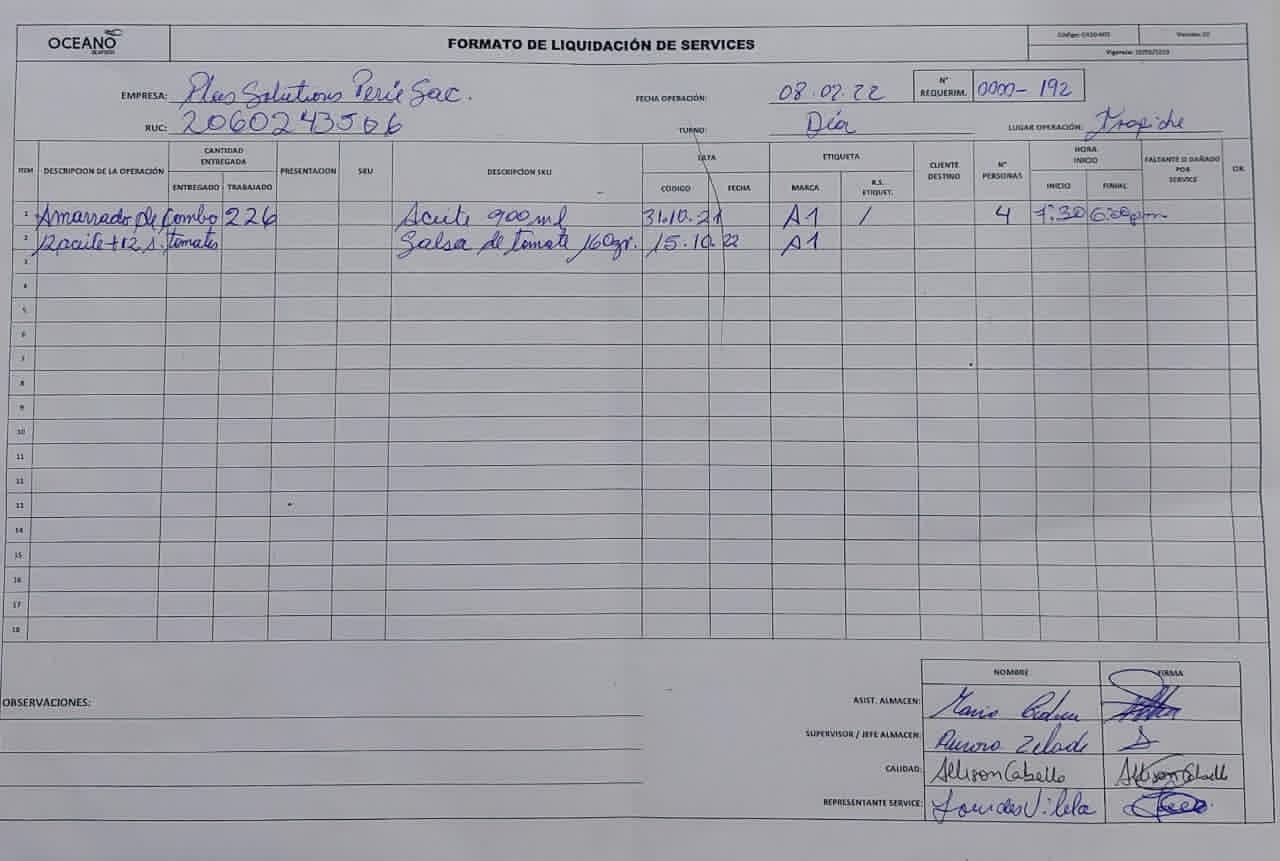 OCEANO
FORMATO DE LIQUIDACIÓN DE SERVICES
EMPRESA: Plus Solutions Perú Sac.
FECHA OPERACIÓN: 08.02.22
N° REQUERIM. 0000-192
RUC: 2060243506
TURNO: Día
LUGAR OPERACIÓN: Trapiche
ITEM DESCRIPCION DE LA OPERACIÓN CANTIDAD ENTREGADA PRESENTACION SKU DESCRIPCION SKU LATA ETIQUETA CLIENTE DESTINO N° PERSONAS HORA INICIO FALTANTE O DAÑADO POR SERVICE
ENTREGADO TRABAJADO CODIGO FECHA MARCA R.S. ETIQUET. INICIO FINAL
1 Amarrado de Combo 226 Aceite 900 ml 31.10.21 A1 / 4 7:30 6:30pm
2 12 aceite + 12 s. tomates Salsa de tomate 160gr. 15.10.22 A1
3
4
5
6
7
8
9
10
11
12
13
14
15
16
17
18
OBSERVACIONES:
NOMBRE FIRMA
ASIST. ALMACEN: Mario
SUPERVISOR / JEFE ALMACEN: Aurora
CALIDAD: Allison Cabello Allison Cabello
REPRESENTANTE SERVICE: Lourdes Vilela